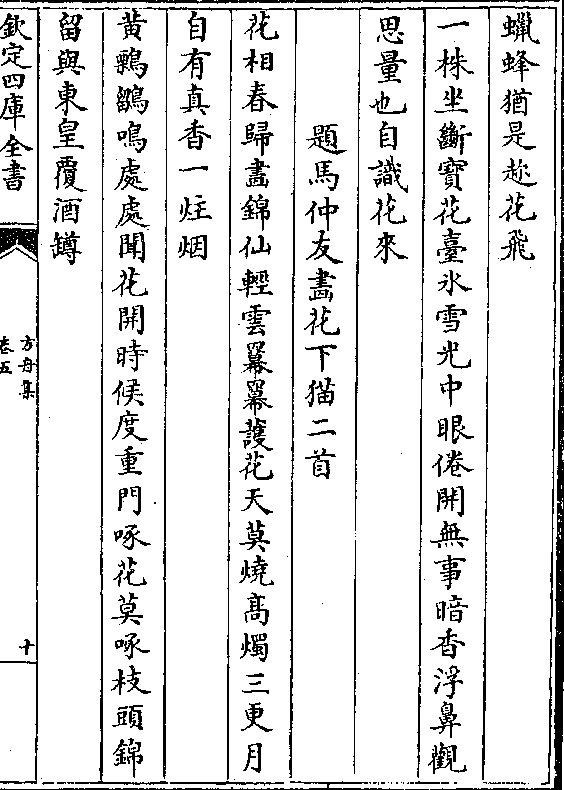 蠟蜂猶是趂花飛
一株坐斷寳花臺氷雪光中眼倦開無事暗香浮鼻觀
思量也自識花來
題馬仲友畵花下猫二首
花相春歸畵錦仙輕雲羃羃䕶花天莫燒髙燭三更月
自有真香一炷烟
黄鸝鶵鳴處處聞花開時候度重門啄花莫啄枝頭錦
留與東皇覆酒罇
欽定四庫全書
方舟集
卷五
十